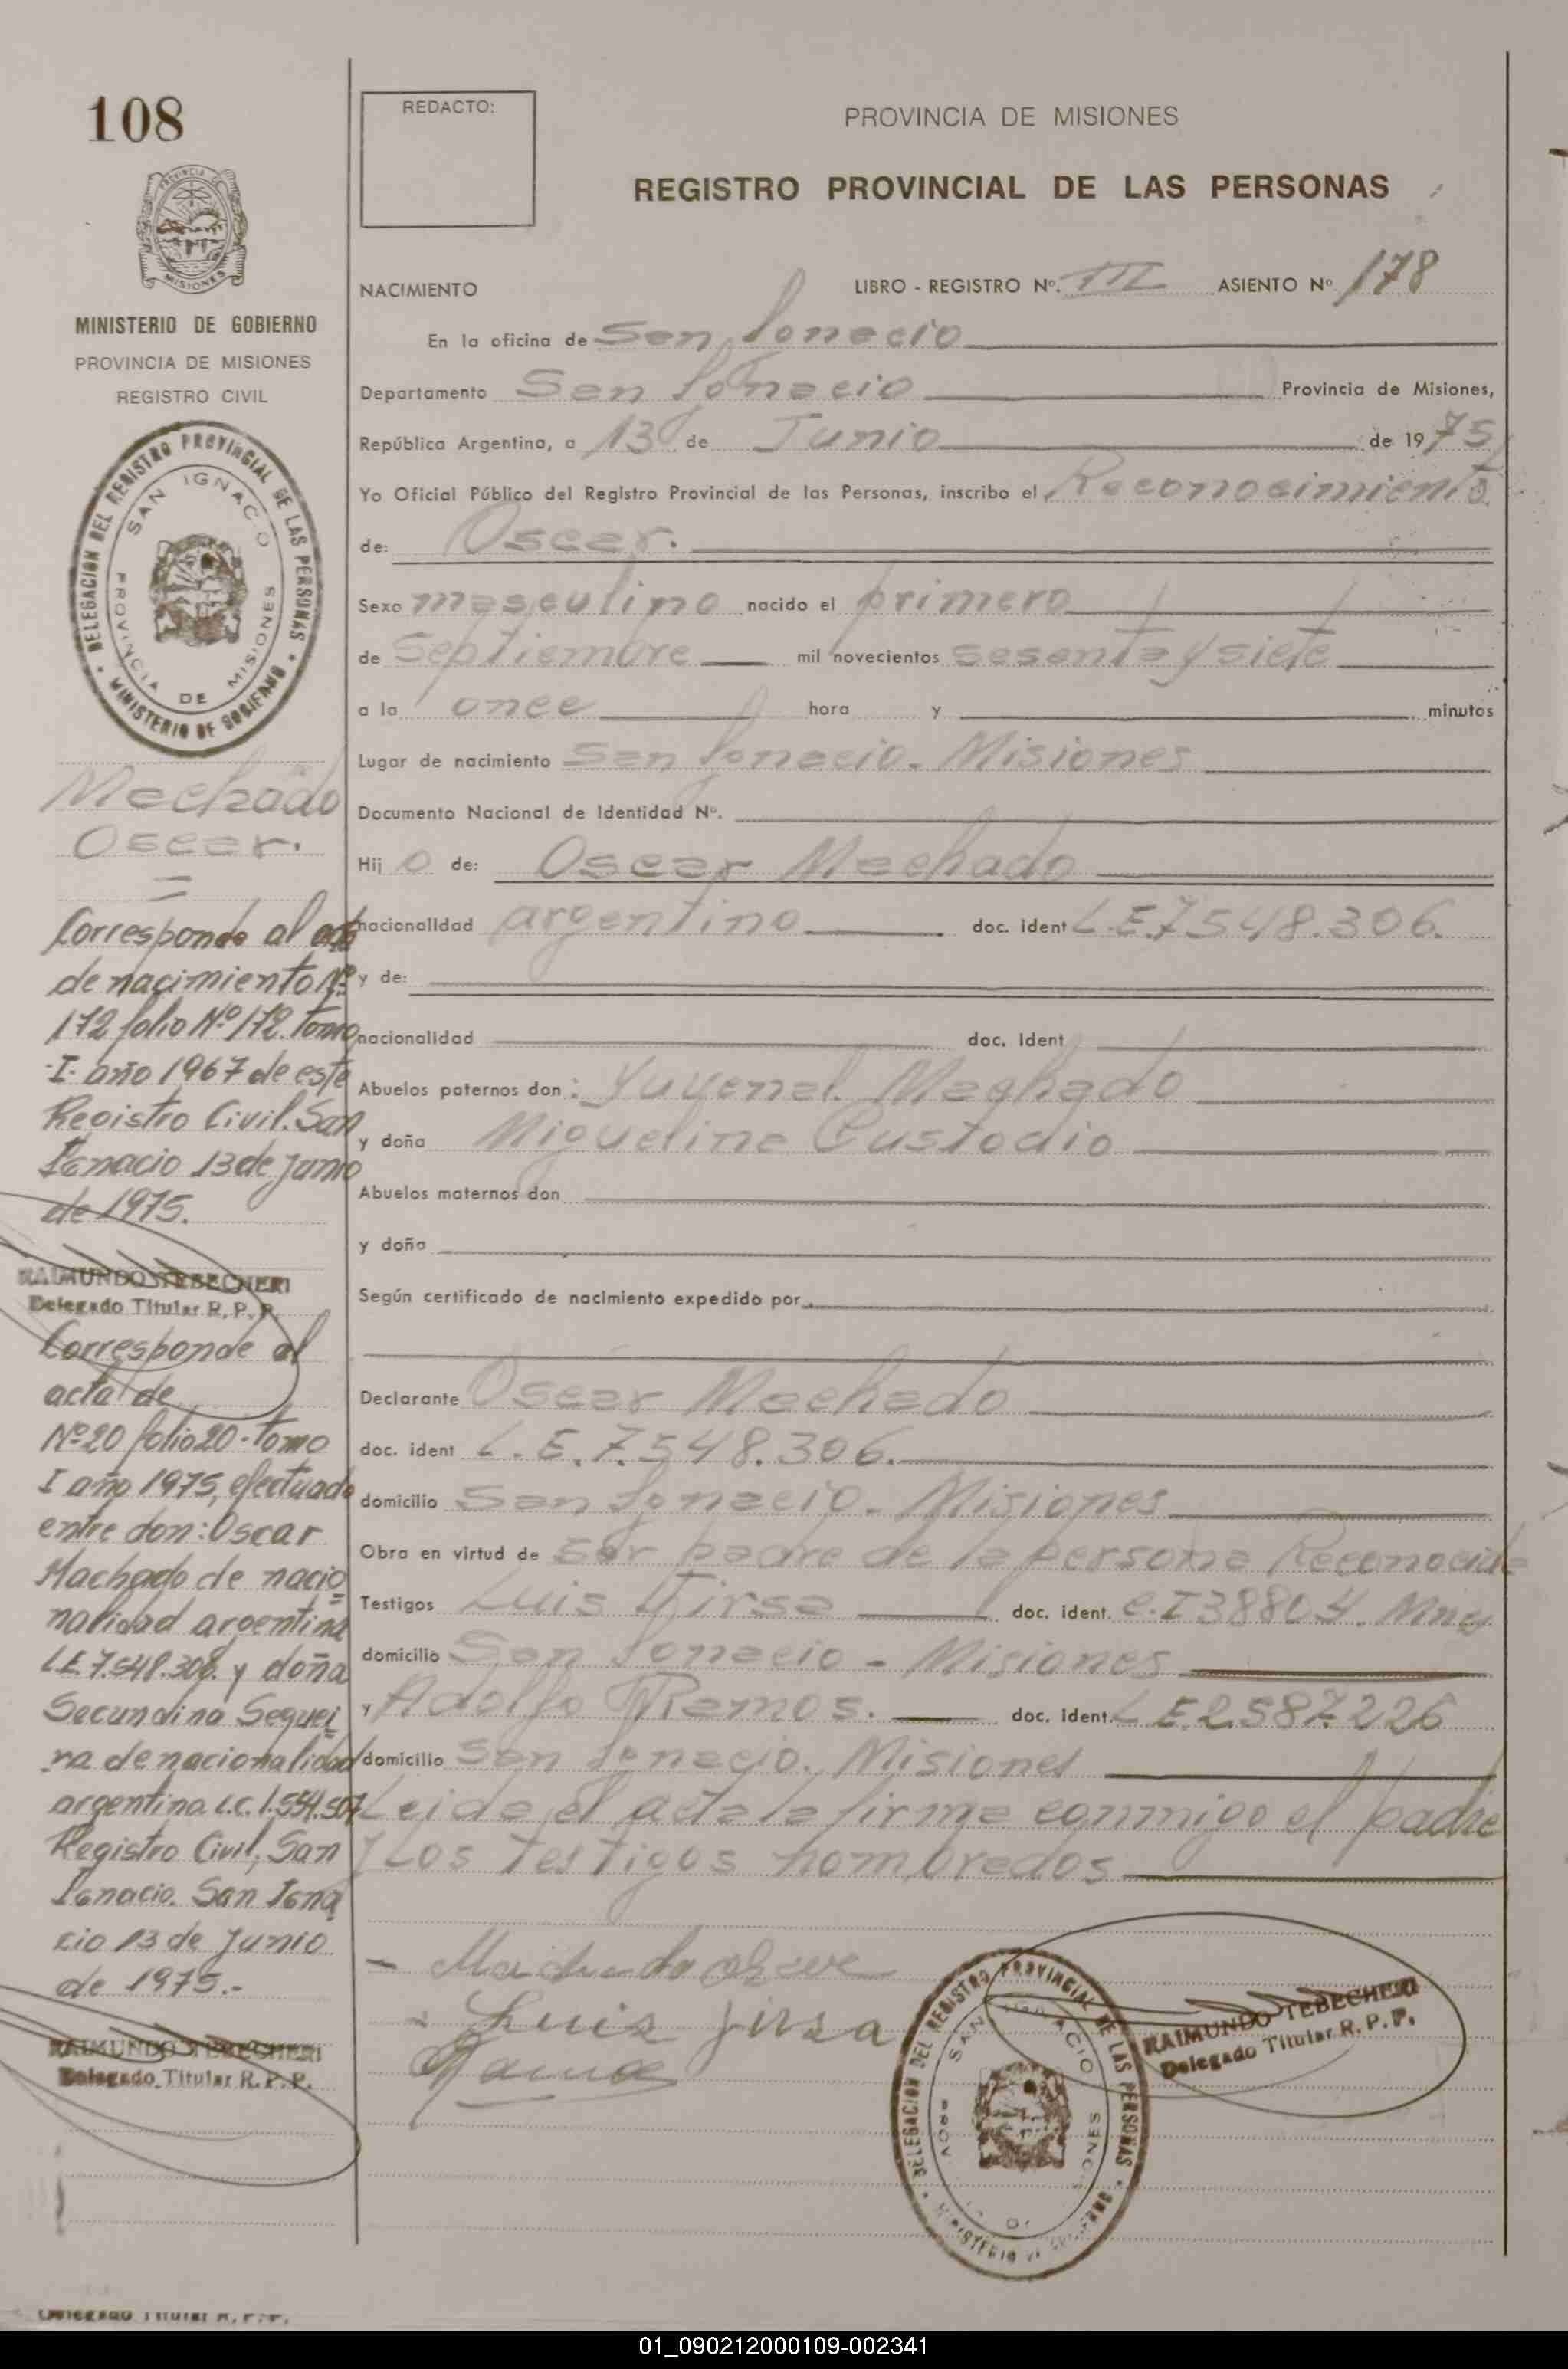 108
REDACTO:
PROVINCIA DE MISIONES
REGISTRO PROVINCIAL DE LAS PERSONAS
MISIONES
MINISTERIO DE GOBIERNO
PROVINCIA DE MISIONES
REGISTRO CIVIL
DELEGACION DEL REGISTRO PROVINCIAL DE LAS PERSONAS
MINISTERIO DE GOBIERNO
SAN IGNACIO
PROVINCIA DE MISIONES
Machado
Oscar.
Corresponde al acta
de nacimiento Nº
172 folio Nº 172. Tomo
-I- año 1967 de este
Registro Civil. San
Ignacio 13 de Junio
de 1975.
RAIMUNDO TEBECHERI
Delegado Titular R. P. P.
Corresponde al
acta de
Nº 20 folio 20 - Tomo
I año 1975, efectuado
entre don: Oscar
Machado de nacio
nalidad argentina
L.E. 7.548.308. y doña
Secundina Seguei
ra de nacionalidad
argentina L.C. 1.554.507
Registro Civil, San
Ignacio. San Igna
cio 13 de Junio
de 1975.-
RAIMUNDO TEBECHERI
Delegado Titular R. P. P.
Delegado Titular R. P. P.
NACIMIENTO LIBRO - REGISTRO Nº. III ASIENTO Nº 178
En la oficina de San Ignacio
Departamento San Ignacio Provincia de Misiones,
República Argentina, a 13 de Junio de 1975
Yo Oficial Público del Registro Provincial de las Personas, inscribo el Reconocimiento
de: Oscar.
Sexo masculino nacido el primero
de Septiembre mil novecientos sesenta y siete
a la once hora y minutos
Lugar de nacimiento San Ignacio. Misiones
Documento Nacional de Identidad Nº.
Hij o de: Oscar Machado
nacionalidad argentino doc. ident L.E.7.548.306.
y de:
nacionalidad doc. Ident
Abuelos paternos don: Yuvenal. Machado
y doña Miguelina Custodio
Abuelos maternos don
y doña
Según certificado de nacimiento expedido por
Declarante Oscar Machado
doc. ident L.E.7.548.306.
domicilio San Ignacio. Misiones
Obra en virtud de ser padre de la persona Reconocida
Testigos Luis Jirsa doc. ident. C.I 38804. Mnes
domicilio San Ignacio - Misiones
y Adolfo Ramos. doc. ident. L.E.2.587.226
domicilio San Ignacio. Misiones
Leida el acta la firma conmigo el padre
y Los testigos nombrados
- Machado
- Luis Jirsa
DELEGACION DEL REGISTRO PROVINCIAL DE LAS PERSONAS
SAN IGNACIO
RAIMUNDO TEBECHERI
Delegado Titular R. P. P.
01_090212000109-002341